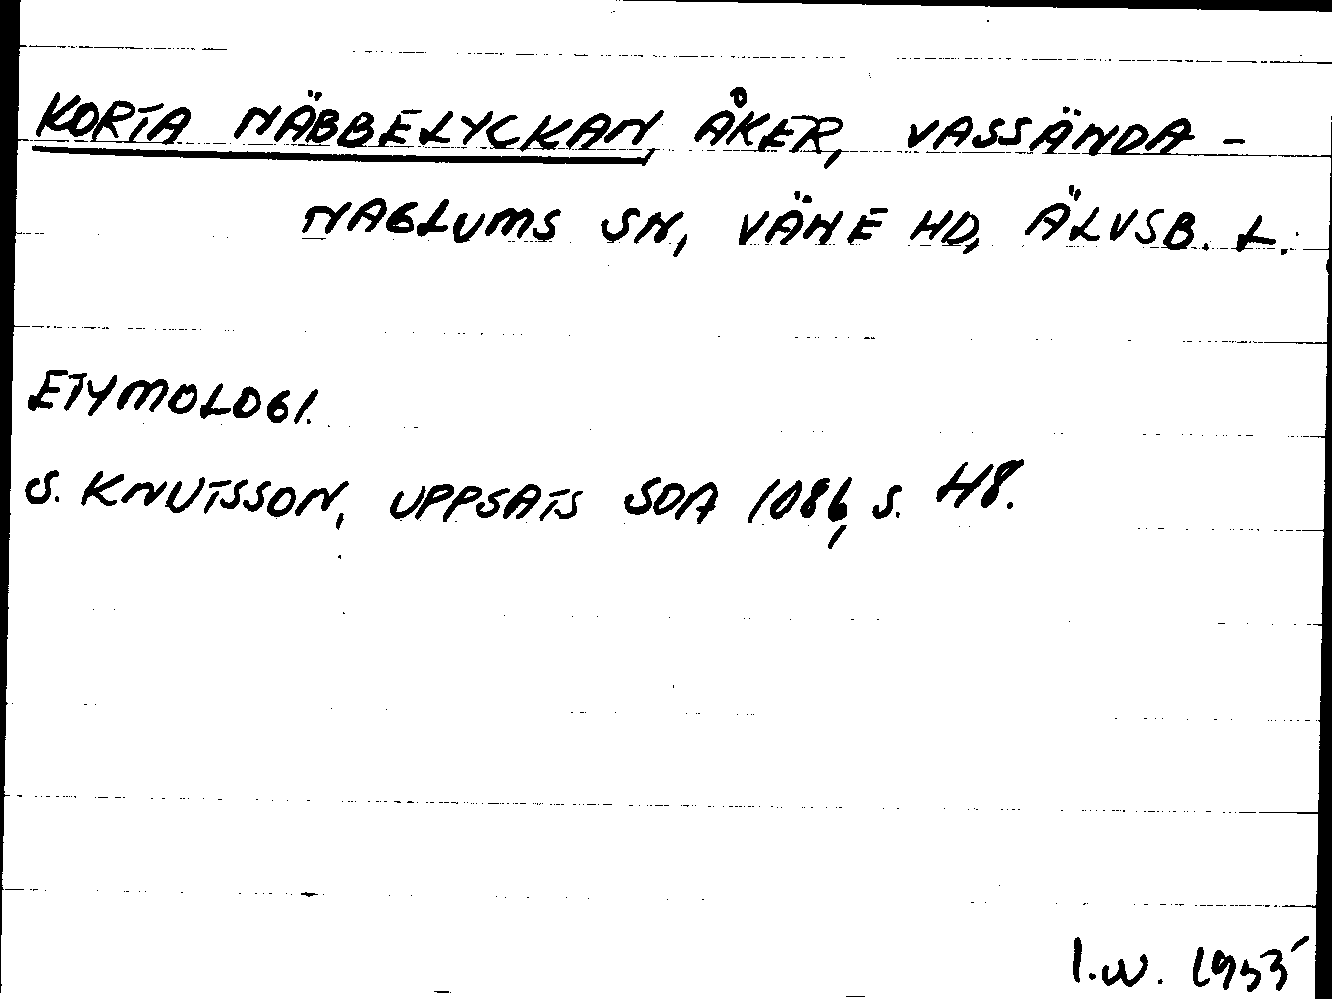 KORTA NÄBBELYCKAN, ÅKER, VASSÄNDA -
NAGLUMS SN, VÄNE HD, ÄLVSB. L.
ETYMOLOGI.
S. KNUTSSON, UPPSATS SOA 1086, S. 48.
I.W. 1953